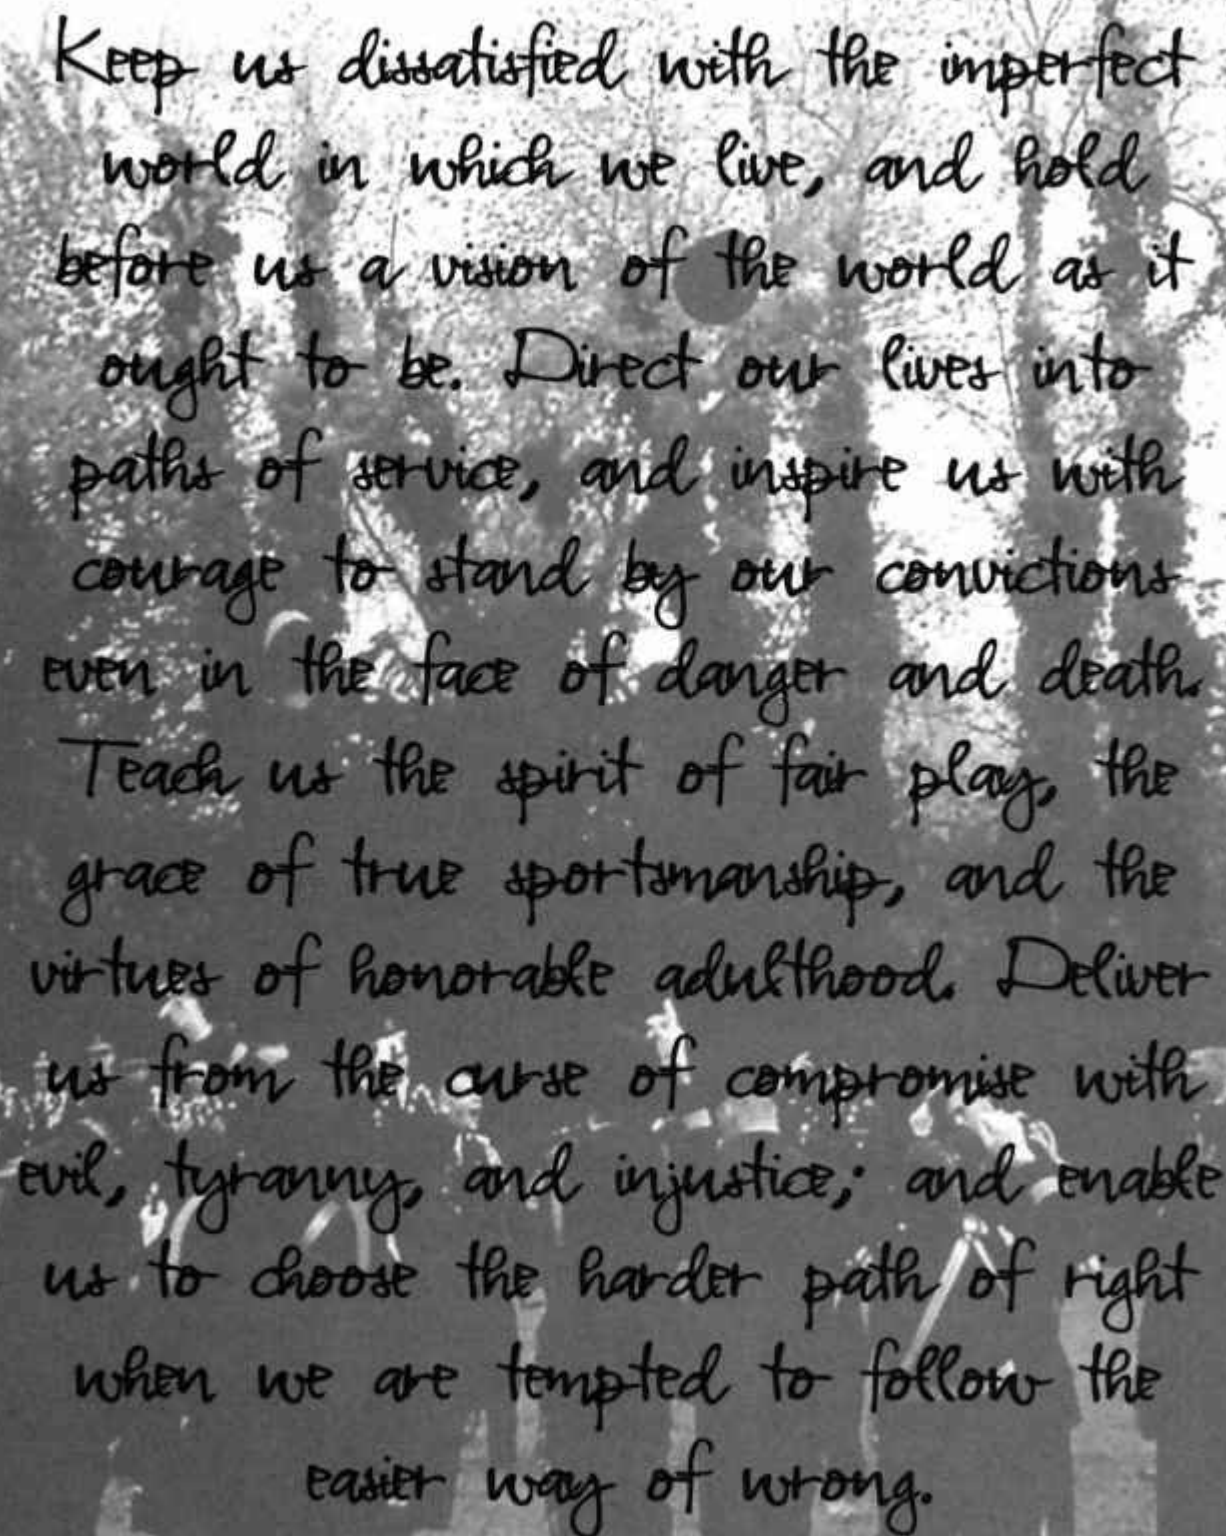 Keep us dissatisfied with the imperfect
world in which we live, and hold
before us a vision of the world as it
ought to be. Direct our lives into
paths of service, and inspire us with
courage to stand by our convictions
even in the face of danger and death.
Teach us the spirit of fair play, the
grace of true sportsmanship, and the
virtues of honorable adulthood. Deliver
us from the curse of compromise with
evil, tyranny, and injustice; and enable
us to choose the harder path of right
when we are tempted to follow the
easier way of wrong.